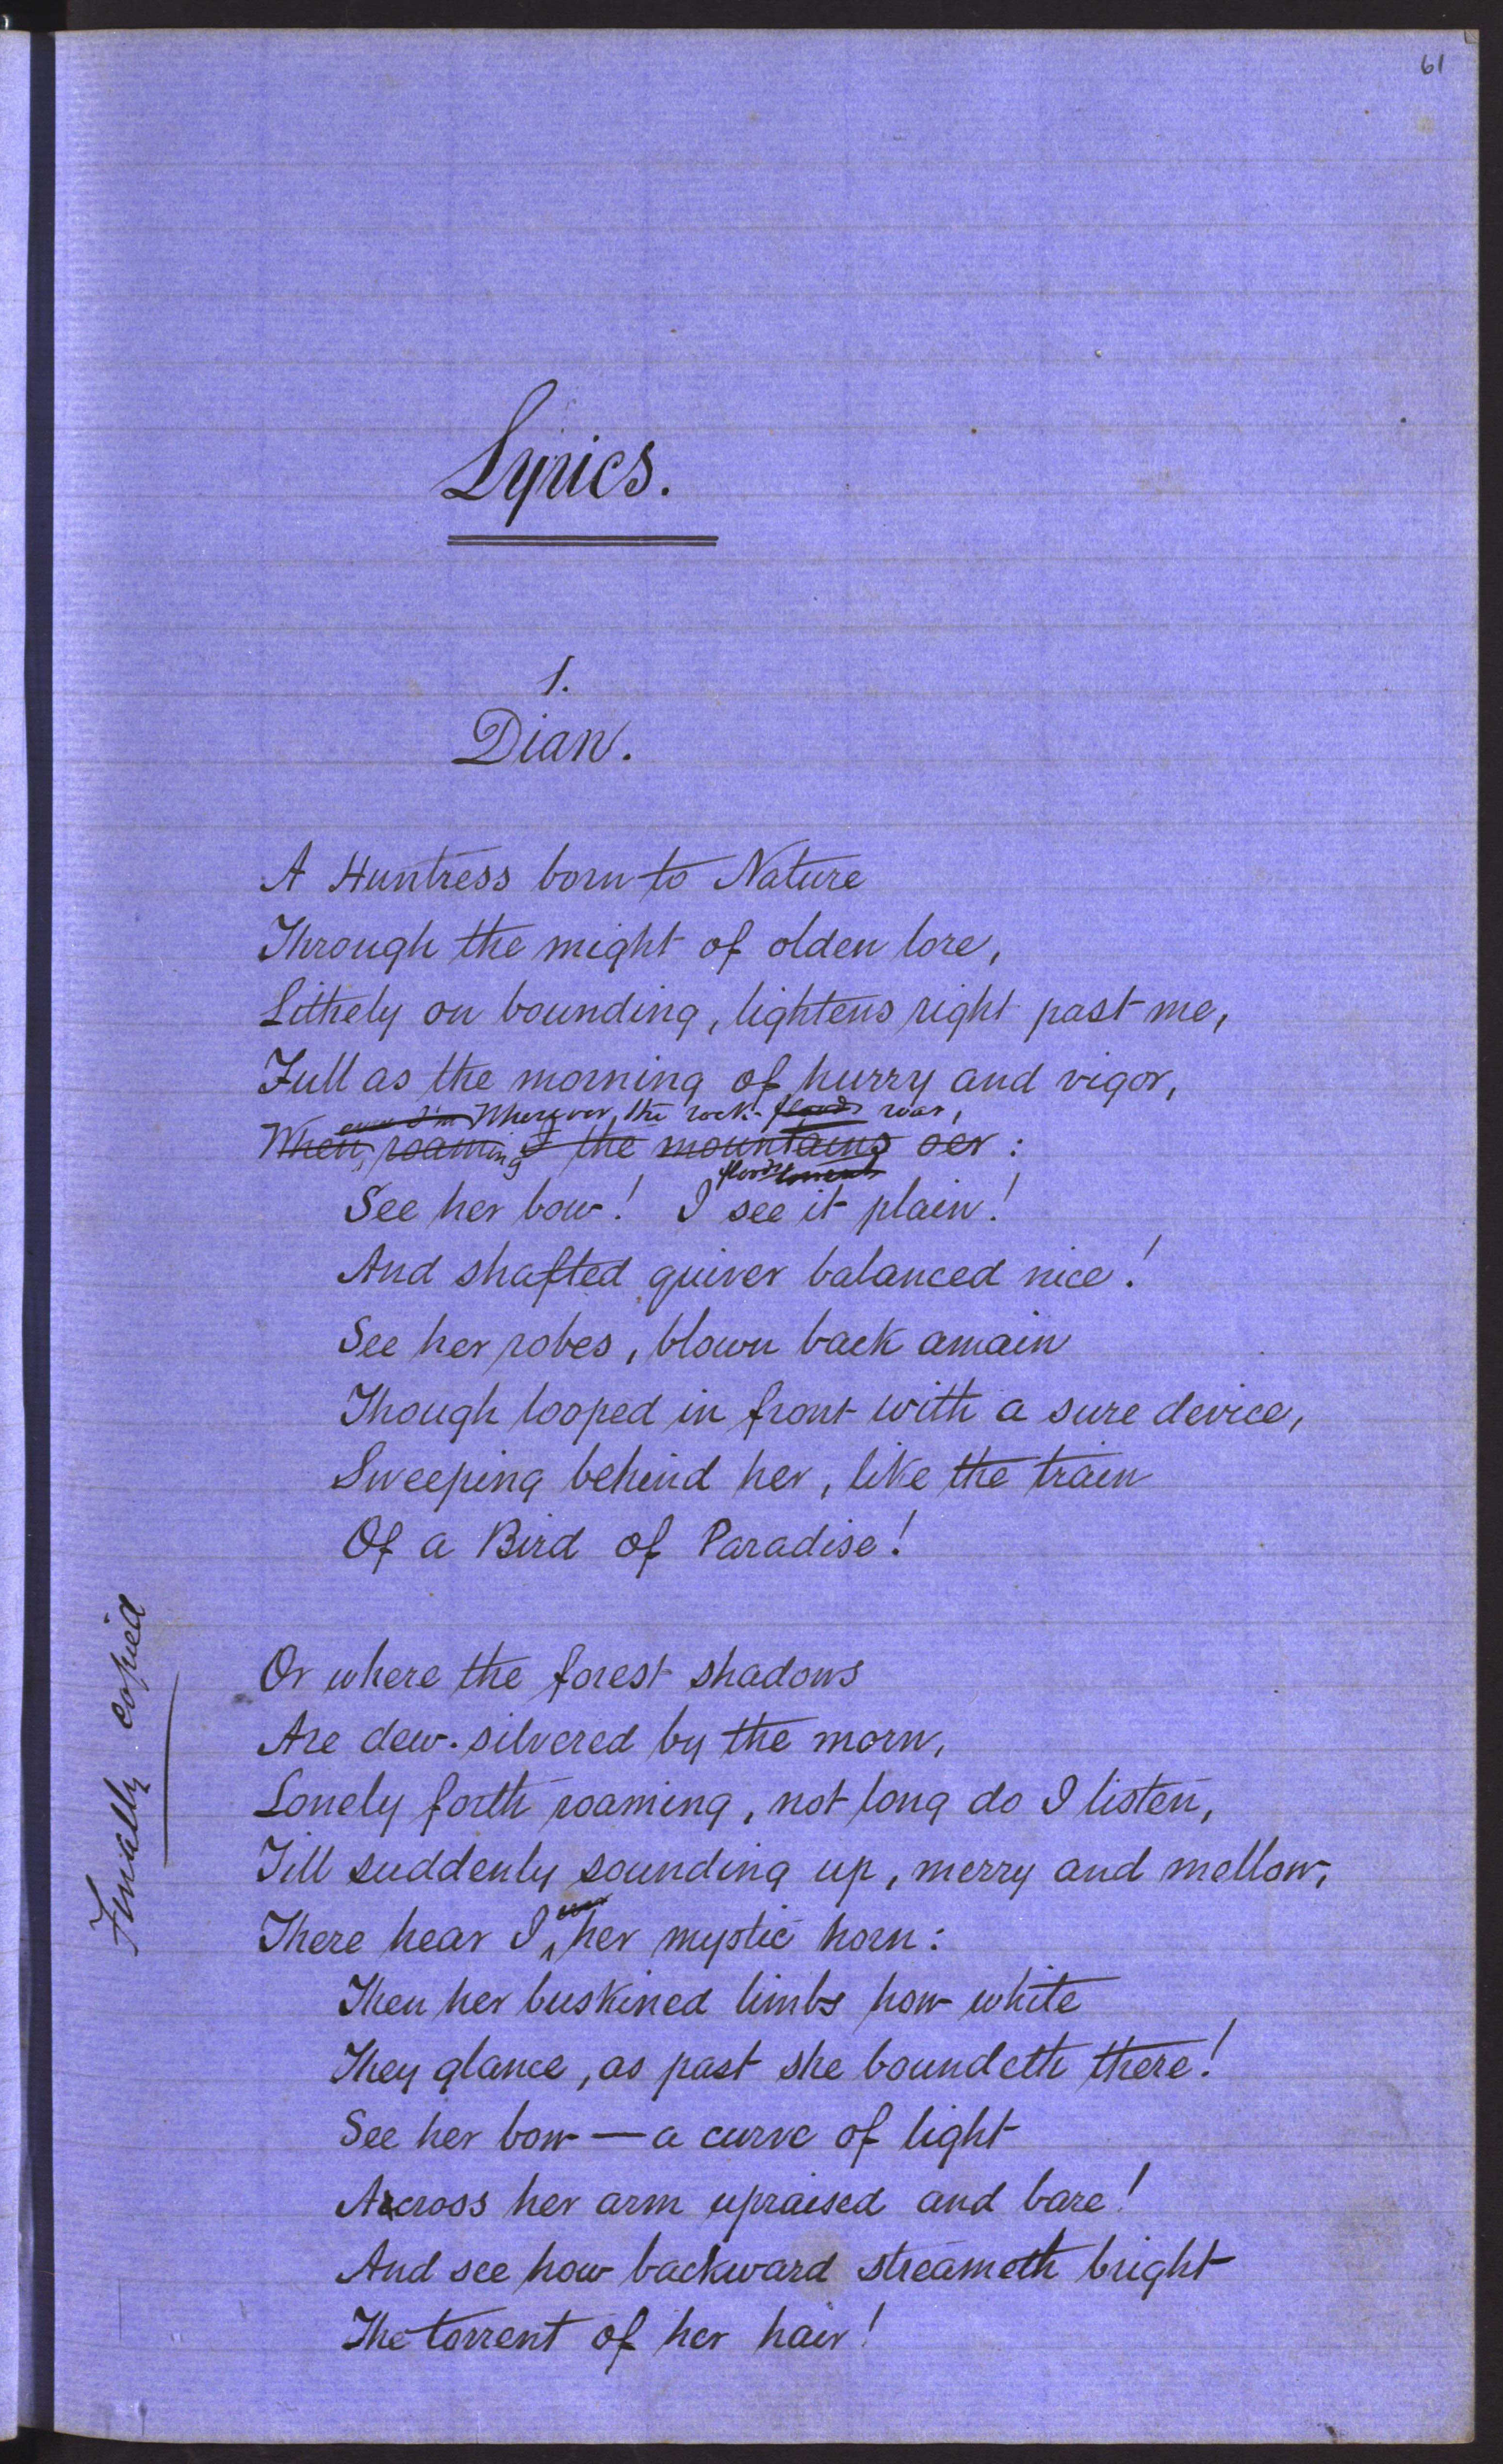 61
Lyrics.
1.
Dian.
A Huntress born to Nature
Through the might of olden lore,
Lithely on bounding, lightens right past me,
Full as the morning of hurry and vigor,
Wherever the rock- floods roar,
When roaming the mountains oer :
floods torrents
See her bow! I see it plain!
And shafted quiver balanced nice!
See her robes, blown back amain
Though looped in front with a sure device,
Sweeping behind her, like the train
Of a Bird of Paradise!
Or where the forest shadows
Are dew-silvered by the morn,
Lonely forth roaming, not long do I listen,
Till suddenly sounding up, merry and mellow,
ever
There hear I her mystic horn :
Then her buskined limbs how white
They glance, as past she boundeth there!
See her bow — a curve of light
Across her arm upraised and bare!
And see how backward streameth bright
The torrent of her hair!
Finally copied